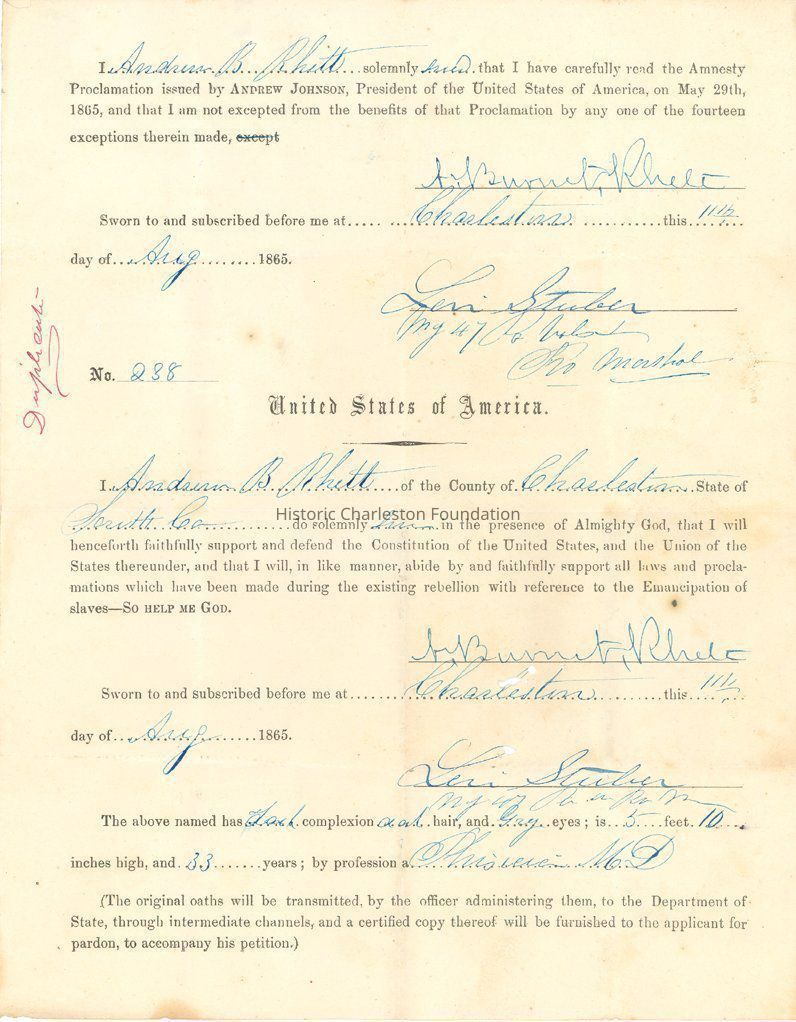 I, Andrew B. Rhett solemnly that I have carefully read the Amnesty
Proclamation issued by ANDREW JOHNSON, President of the United States of America, on May 29th,
1865, and that I am not excepted from the benefits of that Proclamation by any one of the fourteen
exceptions therein made, except
A. Burnet Rhett
Sworn to and subscribed before me at Charleston this 11th
day of Aug 1865.
Levi Stuber
Duplicate
No. 238
United States of America.
I, Andrew B Rhett of the County of Charleston State of
Historic Charleston Foundation
South Ca do solemnly in the presence of Almighty God, that I will
henceforth faithfully support and defend the Constitution of the United States, and the Union of the
States thereunder, and that I will, in like manner, abide by and faithfully support all laws and procla-
mations which have been made during the existing rebellion with reference to the Emancipation of
slaves—SO HELP ME GOD.
A. Burnet Rhett
Sworn to and subscribed before me at Charleston this 11th
day of Aug 1865.
Levi Stuber
The above named has complexion hair, and Gray eyes; is 5 feet 10
inches high, and 33 years; by profession a M.D
(The original oaths will be transmitted, by the officer administering them, to the Department of
State, through intermediate channels, and a certified copy thereof will be furnished to the applicant for
pardon, to accompany his petition.)